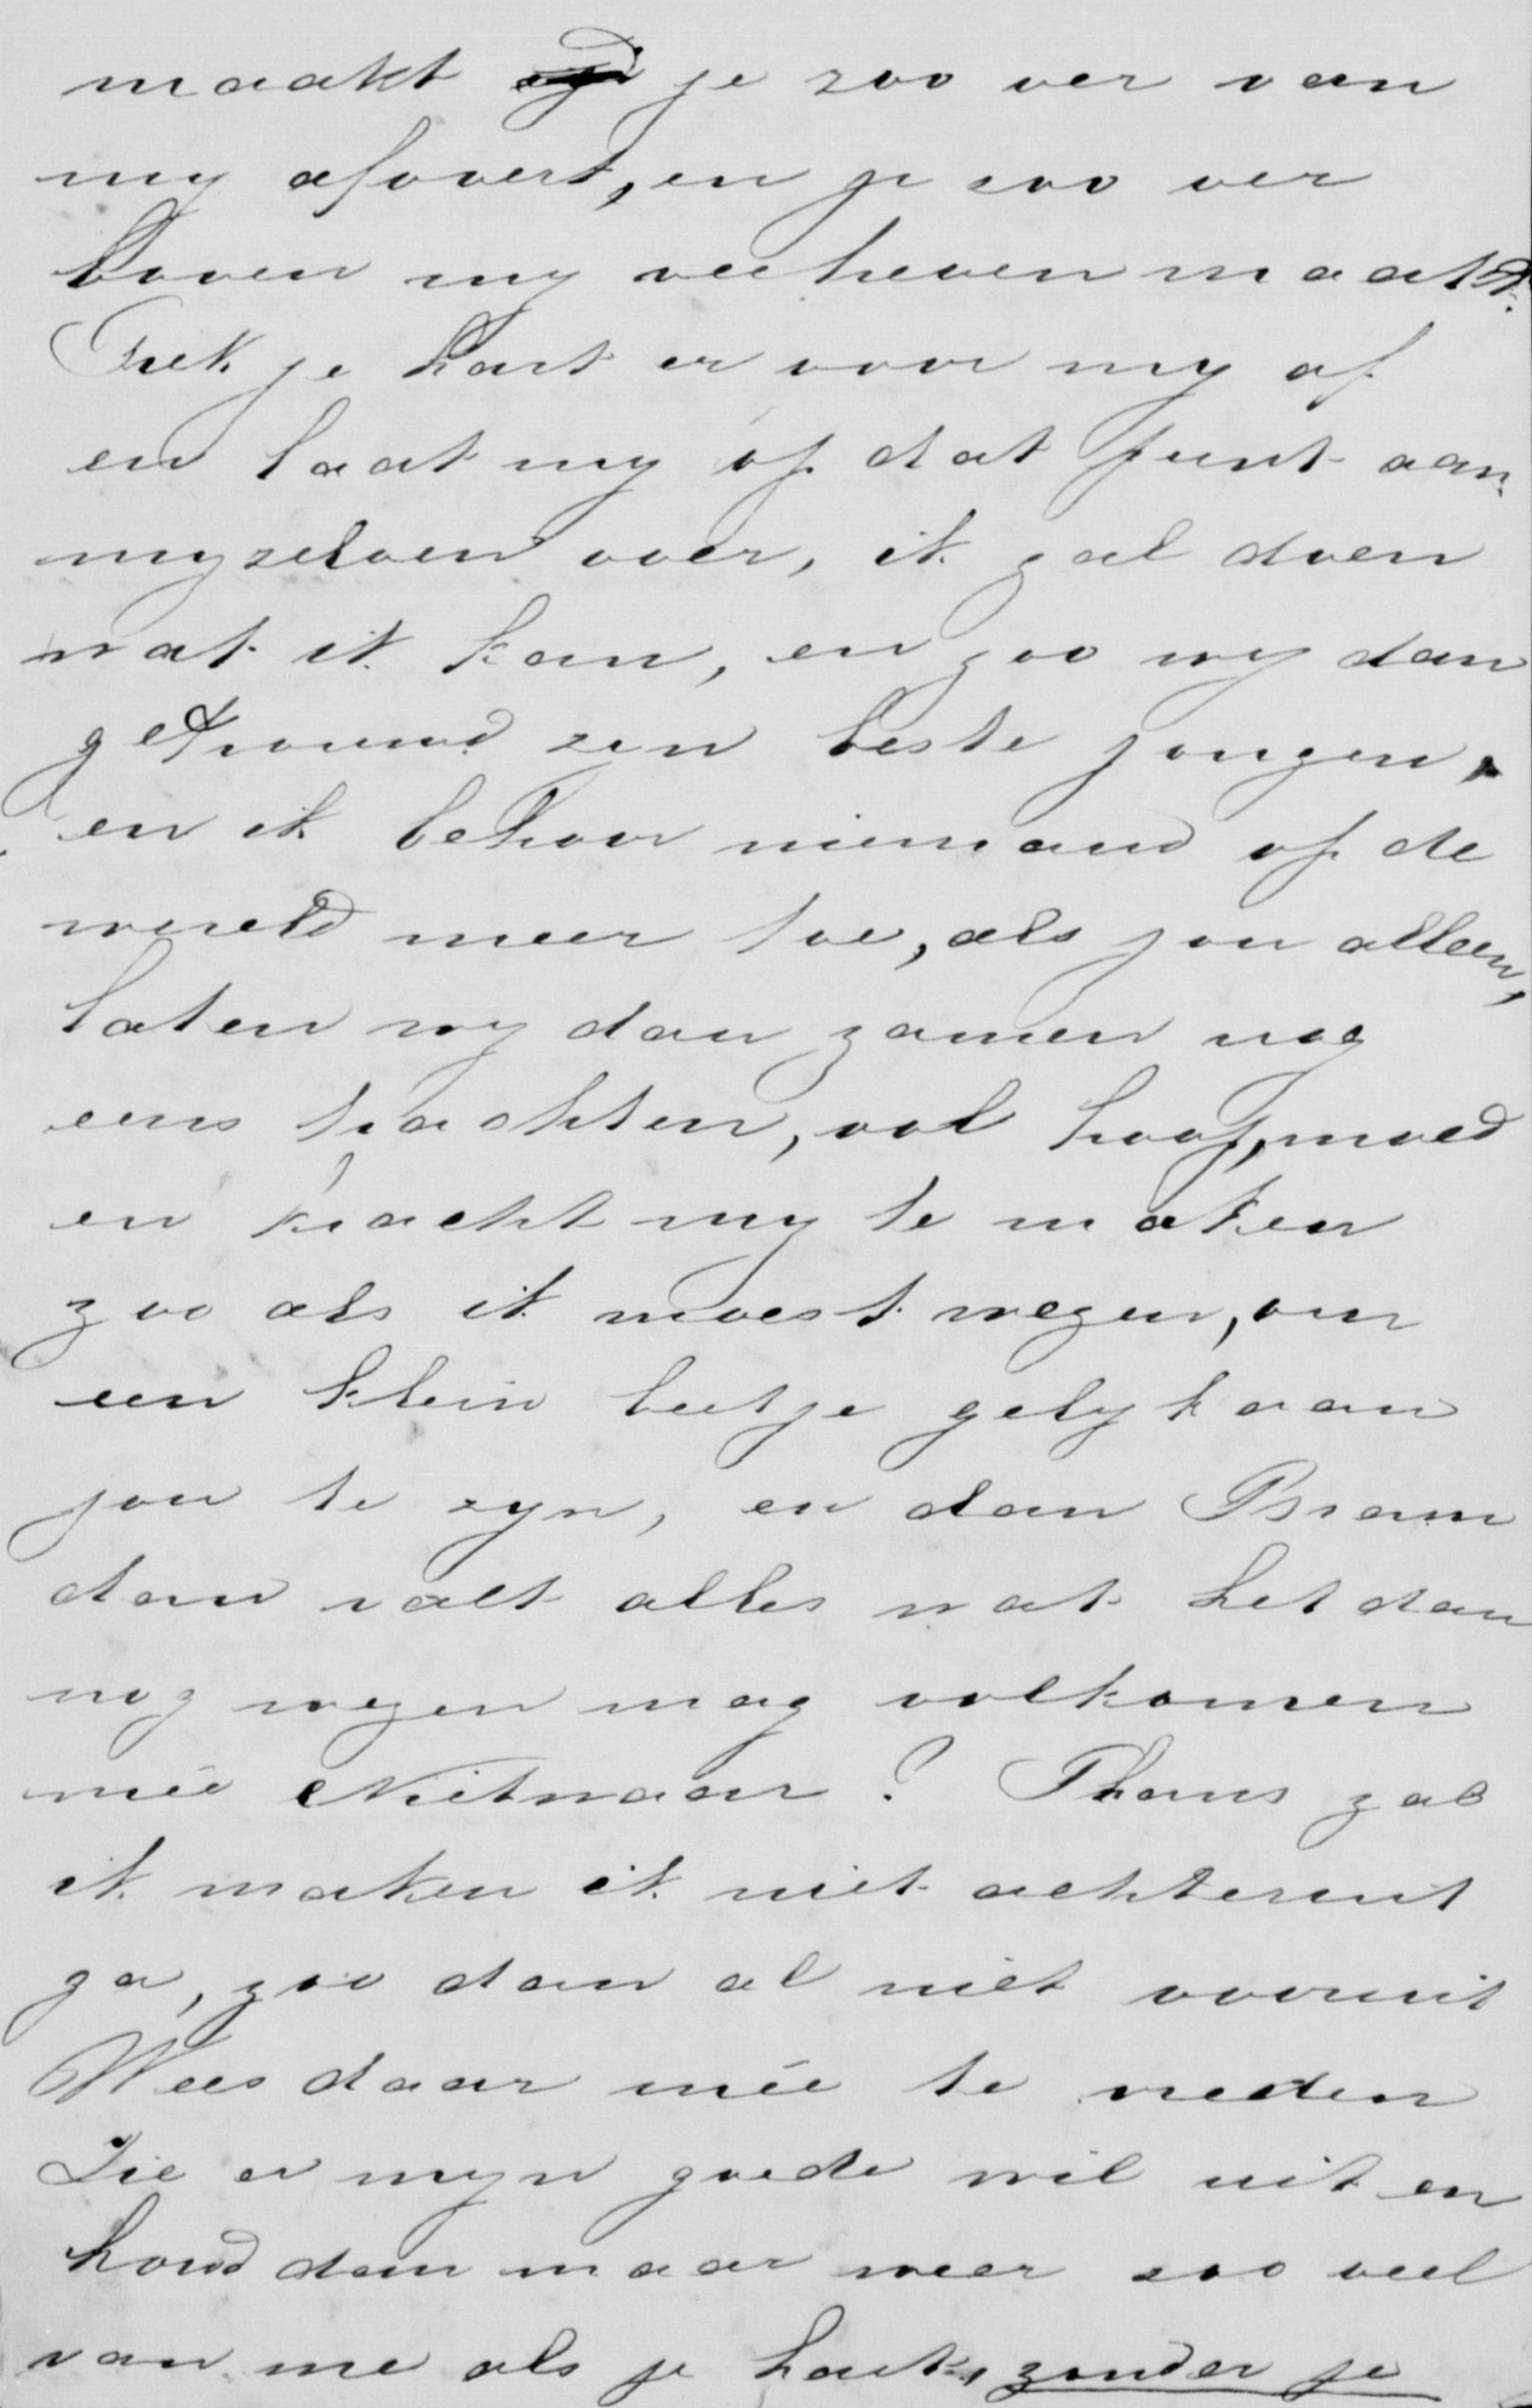 maakt je zoo ver van
my afvoert, en je zoo ver
boven my verheven maakt.
Trek je hart er voor my af
en laat my op dat punt aan
myzelven over, ik zal doen
wat ik kan, en zoo wy dan
getrouwd zyn beste jongen,
en ik behoor niemand op de
wereld meer toe, als jou alleen,
laten wy dan zamen nog
eens trachten, vol hoop, moed
en kracht my te maken
zoo als ik moest wezen, om
een klein beetje gelyk aan
jou te zyn, en dan Bram
dan valt alles wat het dan
nog wezen mag volkomen
mée Nietwaar? Thans zal
ik maken ik niet achteruit
ga, zoo dan al niet vooruit
Wees daar mée te vreden
Zie er myn goede wil uit en
houd dan maar weer zoo veel
van me als je hart, zonder je